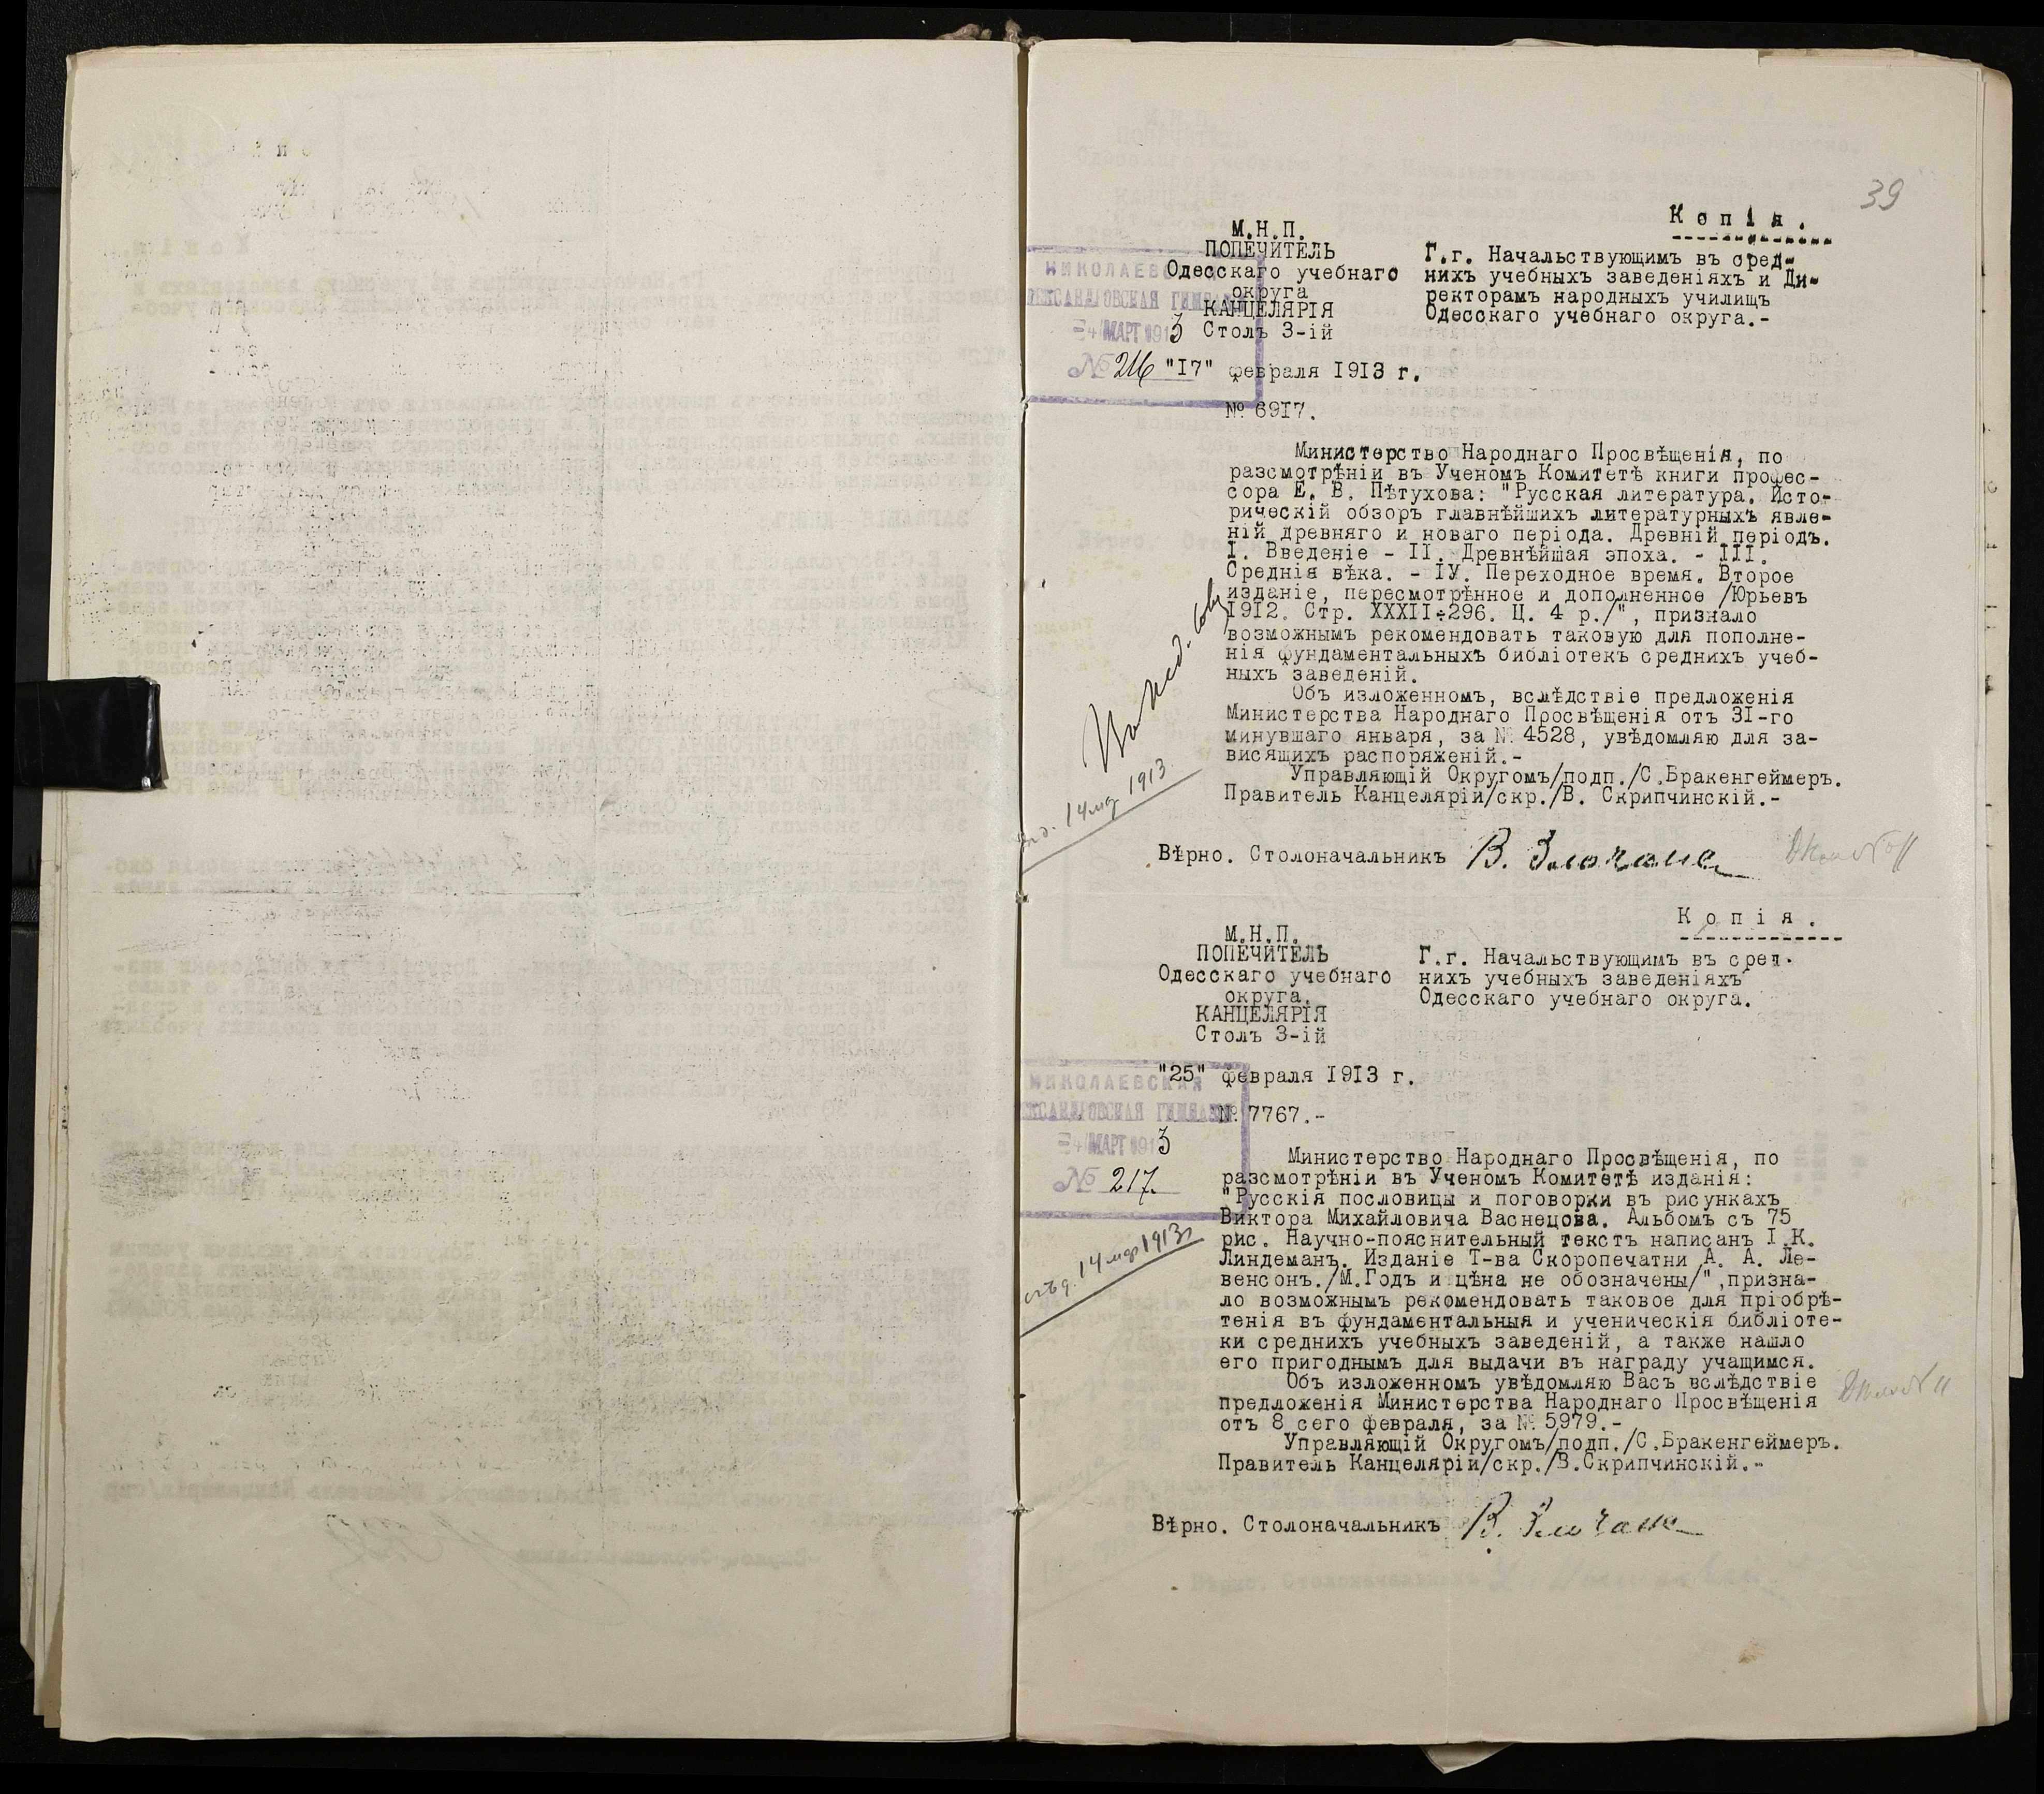 39
Копія.
М.Н.П.
ПОПЕЧИТЕЛЬ
Одесскаго учебнаго
округа
КАНЦЕЛЯРІЯ
Столъ 3-ій
"17" февраля 1913 г.
№ 6917.
Г.г. Начальствующимъ въ сред-
нихъ учебныхъ заведеніяхъ и Ди-
ректорамъ народныхъ училищъ
Одесскаго учебнаго округа.-
НИКОЛАЕВСКАЯ
АЛЕКСАНДРОВСКАЯ ГИМНАЗІЯ
-4 МАРТ 1913
№ 216
Министерство Народнаго Просвѣщенія, по
разсмотрѣніи въ Ученомъ Комитетѣ книги профес-
сора Е. В. Пѣтухова: "Русская литература. Исто-
рическій обзоръ главнѣйшихъ литературныхъ явле-
ній древняго и новаго періода. Древній періодъ.
I. Введеніе - II. Древнѣйшая эпоха. - III.
Среднія вѣка. - IУ. Переходное время. Второе
изданіе, пересмотрѣнное и дополненное /Юрьевъ
1912. Стр. XXXII÷296. Ц. 4 р./", признало
возможнымъ рекомендовать таковую для пополне-
нія фундаментальныхъ библіотекъ среднихъ учеб-
ныхъ заведеній.
Объ изложенномъ, вслѣдствіе предложенія
Министерства Народнаго Просвѣщенія отъ 31-го
минувшаго января, за № 4528, увѣдомляю для за-
висящихъ распоряженій.-
Управляющій Округомъ/подп./С.Бракенгеймеръ.
Правитель Канцеляріи/скр./В. Скрипчинскій.-
14 мар. 1913
Вѣрно. Столоначальникъ
Копія.
М.Н.П.
ПОПЕЧИТЕЛЬ
Одесскаго учебнаго
округа.
КАНЦЕЛЯРІЯ
Столъ 3-ій
"25" февраля 1913 г.
№ 7767.-
Г.г. Начальствующимъ въ сред-
нихъ учебныхъ заведеніяхъ
Одесскаго учебнаго округа.
НИКОЛАЕВСКАЯ
АЛЕКСАНДРОВСКАЯ ГИМНАЗІЯ
-4 МАРТ 1913
№ 217.
Министерство Народнаго Просвѣщенія, по
разсмотрѣніи въ Ученомъ Комитетѣ изданія:
"Русскія пословицы и поговорки въ рисункахъ
Виктора Михайловича Васнецова. Альбомъ съ 75
рис. Научно-пояснительный текстъ написанъ I.К.
Линдеманъ. Изданіе Т-ва Скоропечатни А. А. Ле-
венсонъ./М.Годъ и цѣна не обозначены/",призна-
ло возможнымъ рекомендовать таковое для пріобрѣ-
тенія въ фундаментальныя и ученическія библіоте-
ки среднихъ учебныхъ заведеній, а также нашло
его пригоднымъ для выдачи въ награду учащимся.
Объ изложенномъ увѣдомляю Васъ вслѣдствіе
предложенія Министерства Народнаго Просвѣщенія
отъ 8 сего февраля, за № 5979.-
Управляющій Округомъ/подп./С.Бракенгеймеръ.
Правитель Канцеляріи/скр./В.Скрипчинскій.-
14 мар 1913
Вѣрно. Столоначальникъ